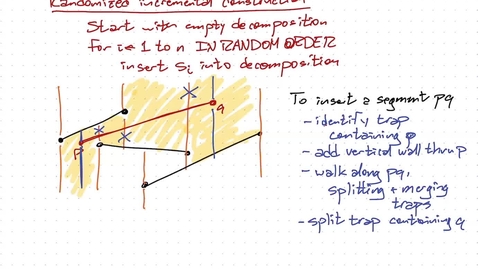 Randomized incremental construction
Start with empty decomposition
for i ← 1 to n IN RANDOM ORDER
insert Si into decomposition
p
q
To insert a segment pq
- identify trap
containing p
- add vertical wall thru p
- walk along pq,
splitting + merging
traps
- split trap containing q